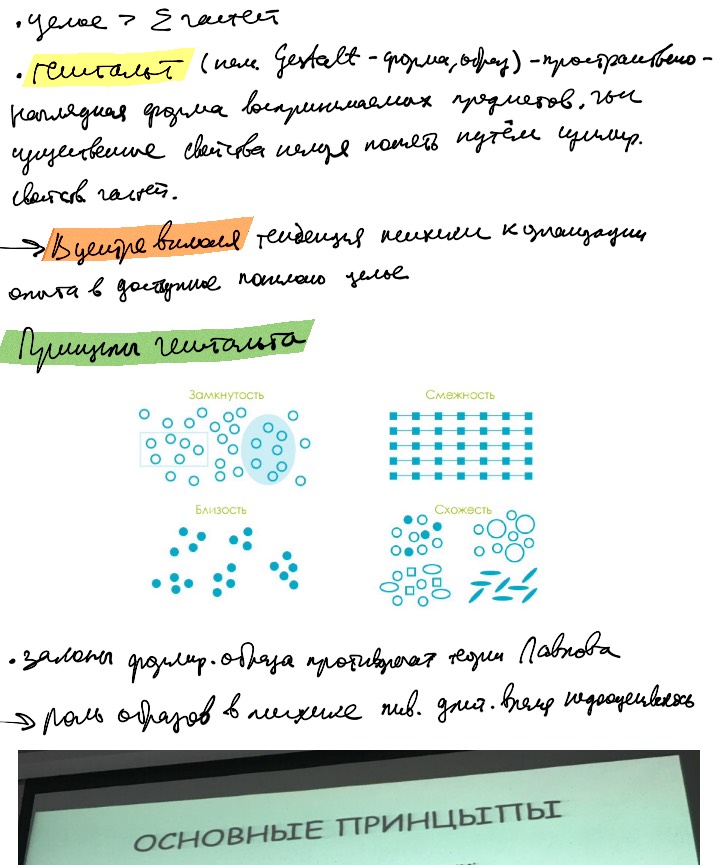 • целое > Σ частей
• Гештальт (нем. Gestalt – форма, образ) – пространственно-
наглядная форма воспринимаемых предметов, чьи
существенные свойства нельзя понять путём суммир.
свойств частей.
→ В центре внимания тенденция психики к организации
опыта в доступное понимаю целое
Принципы гештальта
Замкнутость
Смежность
Близость
Схожесть
• законы формир. образа противоречат теории Павлова
→ роль образов в психике длит. время недооценивалось
ОСНОВНЫЕ ПРИНЦЫПЫ